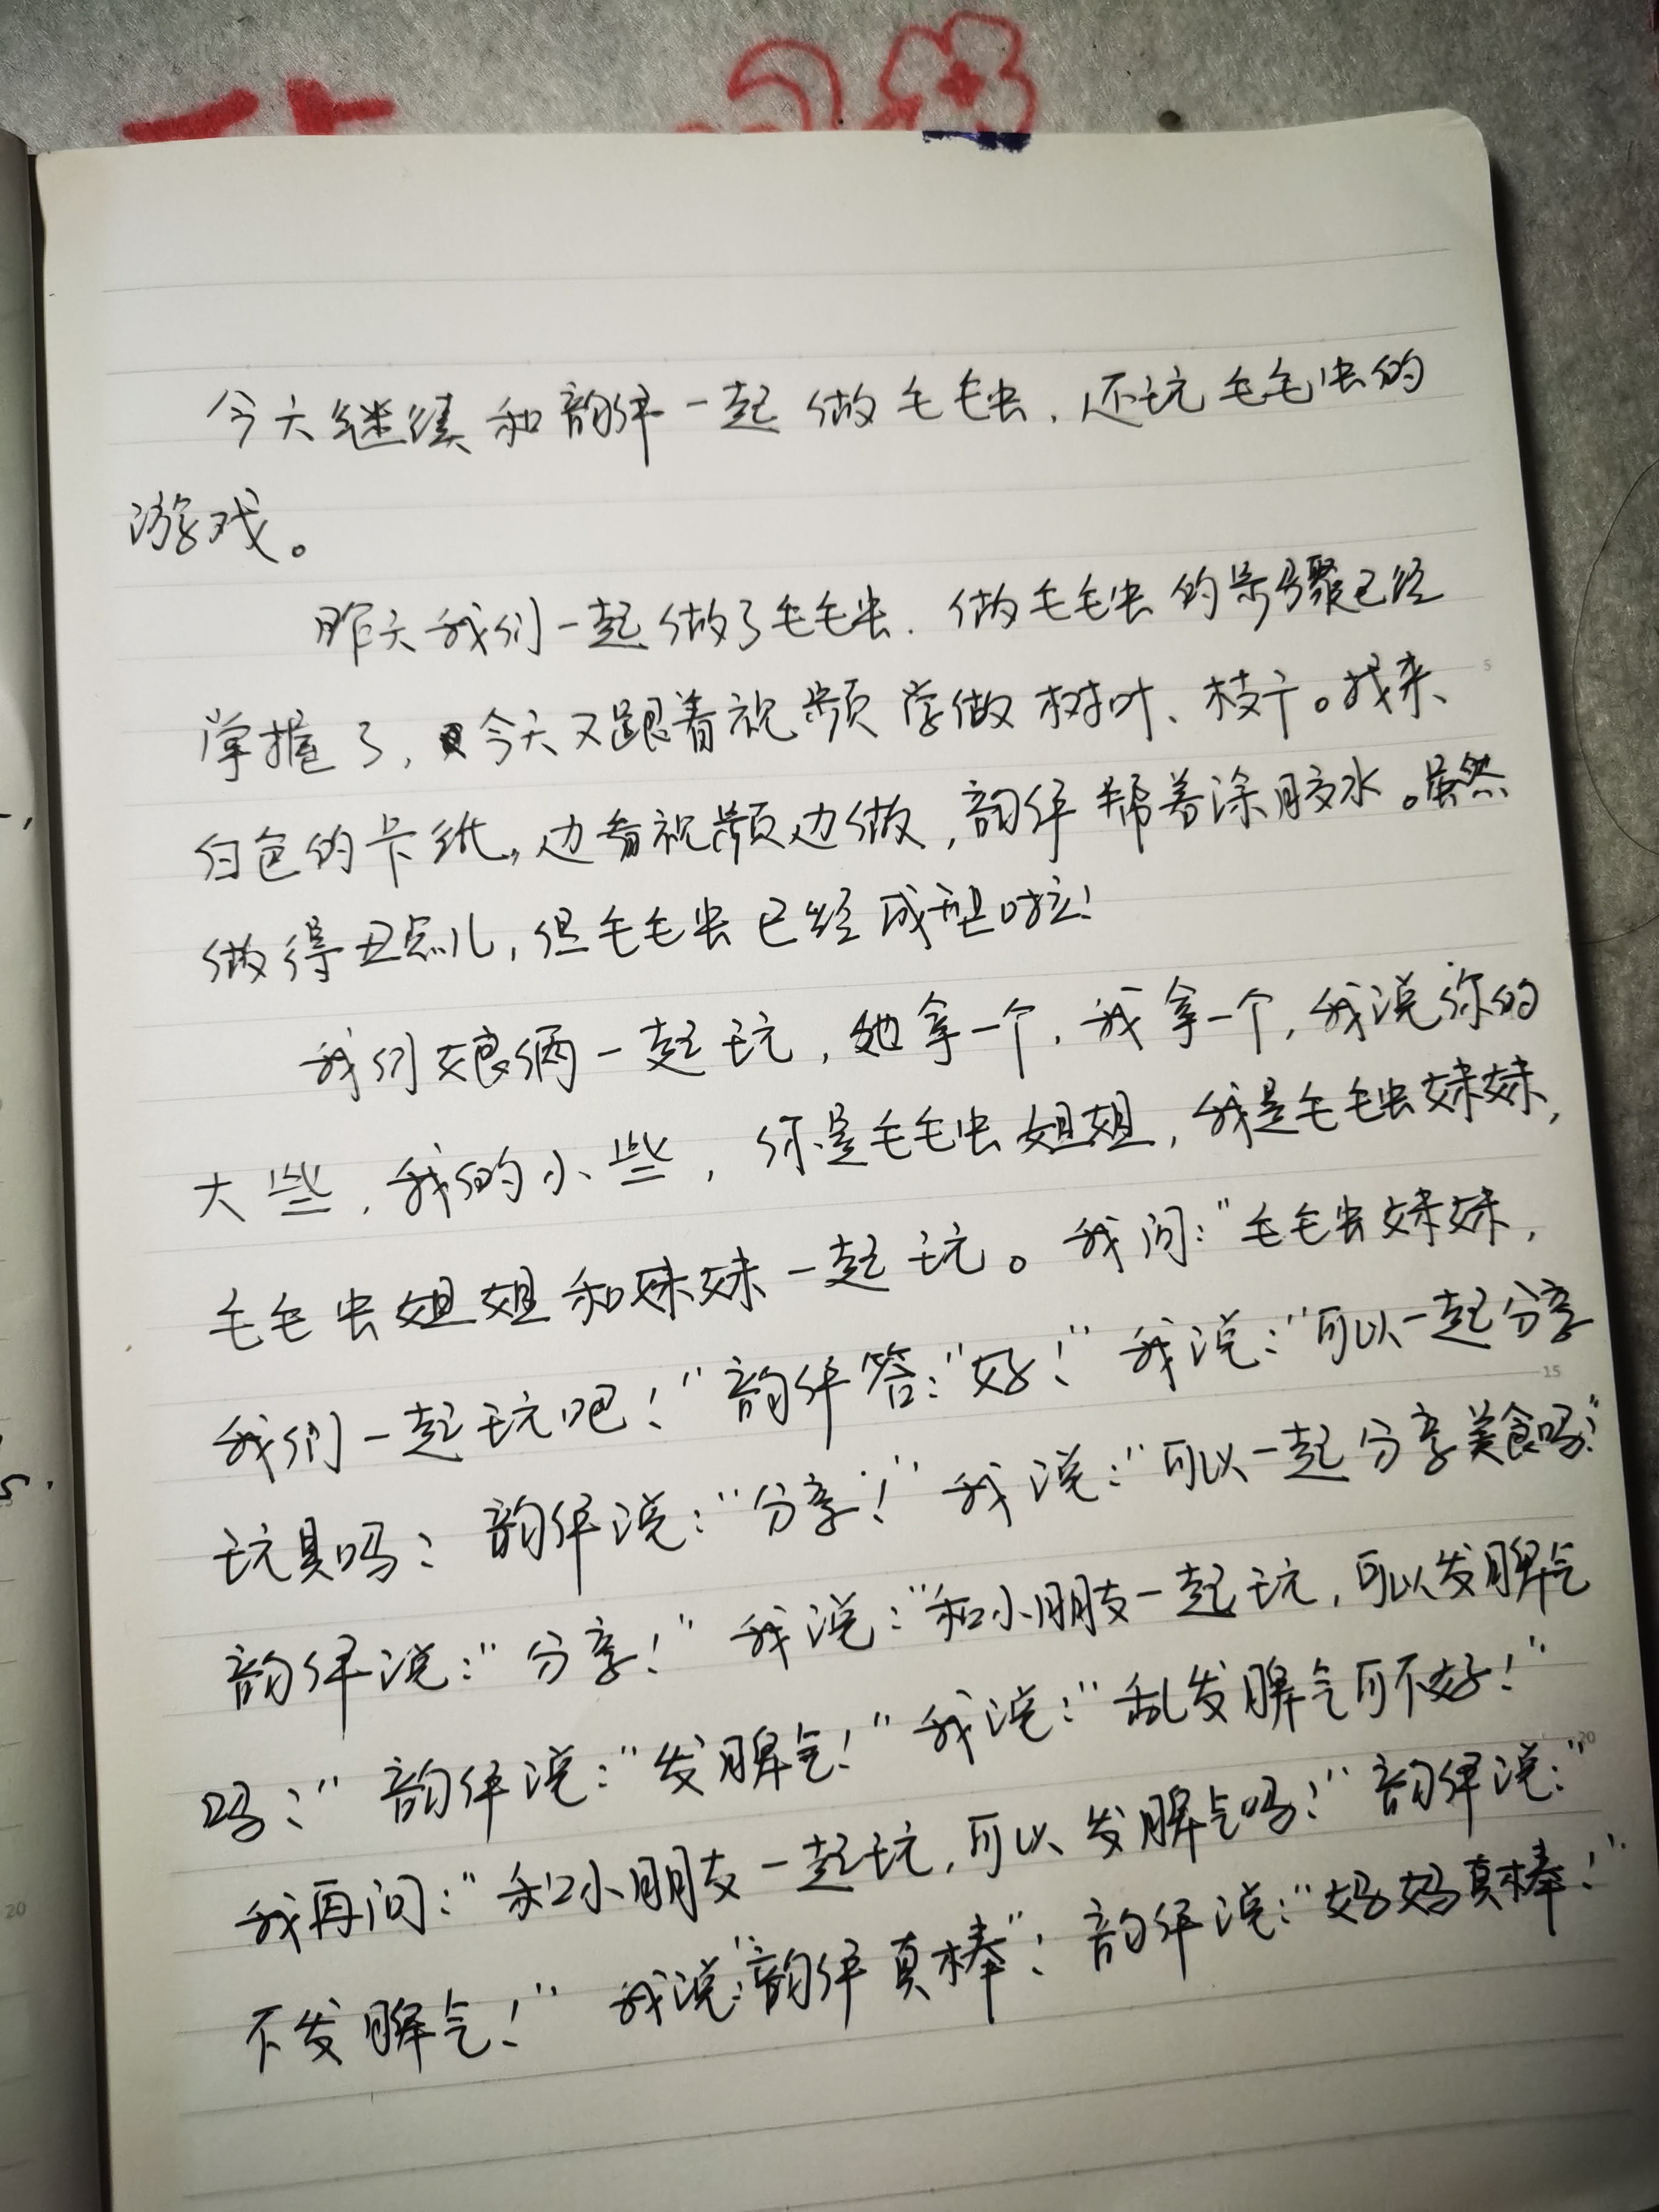 今天继续和韵伊一起做毛毛虫，还玩毛毛虫的
游戏。
昨天我们一起做了毛毛虫，做毛毛虫的步骤已经
掌握了，今天又跟着视频学做树叶、枝干。找来
白色的卡纸，边看视频边做，韵伊帮着涂胶水。虽然
做得丑点儿，但毛毛虫已经成型啦！
我们娘俩一起玩，她拿一个，我拿一个，我说你的
大些，我的小些，你是毛毛虫姐姐，我是毛毛虫妹妹，
毛毛虫姐姐和妹妹一起玩。我问：“毛毛虫妹妹，
我们一起玩吧！”韵伊答：“好！”我说：“可以一起分享
玩具吗？韵伊说：“分享！”我说：“可以一起分享美食吗？”
韵伊说：“分享！”我说：“和小朋友一起玩，可以发脾气
吗？”韵伊说：“发脾气！”我说：“乱发脾气可不好！”
我再问：“和小朋友一起玩，可以发脾气吗？”韵伊说：“
不发脾气！”我说：“韵伊真棒”！韵伊说：“妈妈真棒！”
20
5
15
20